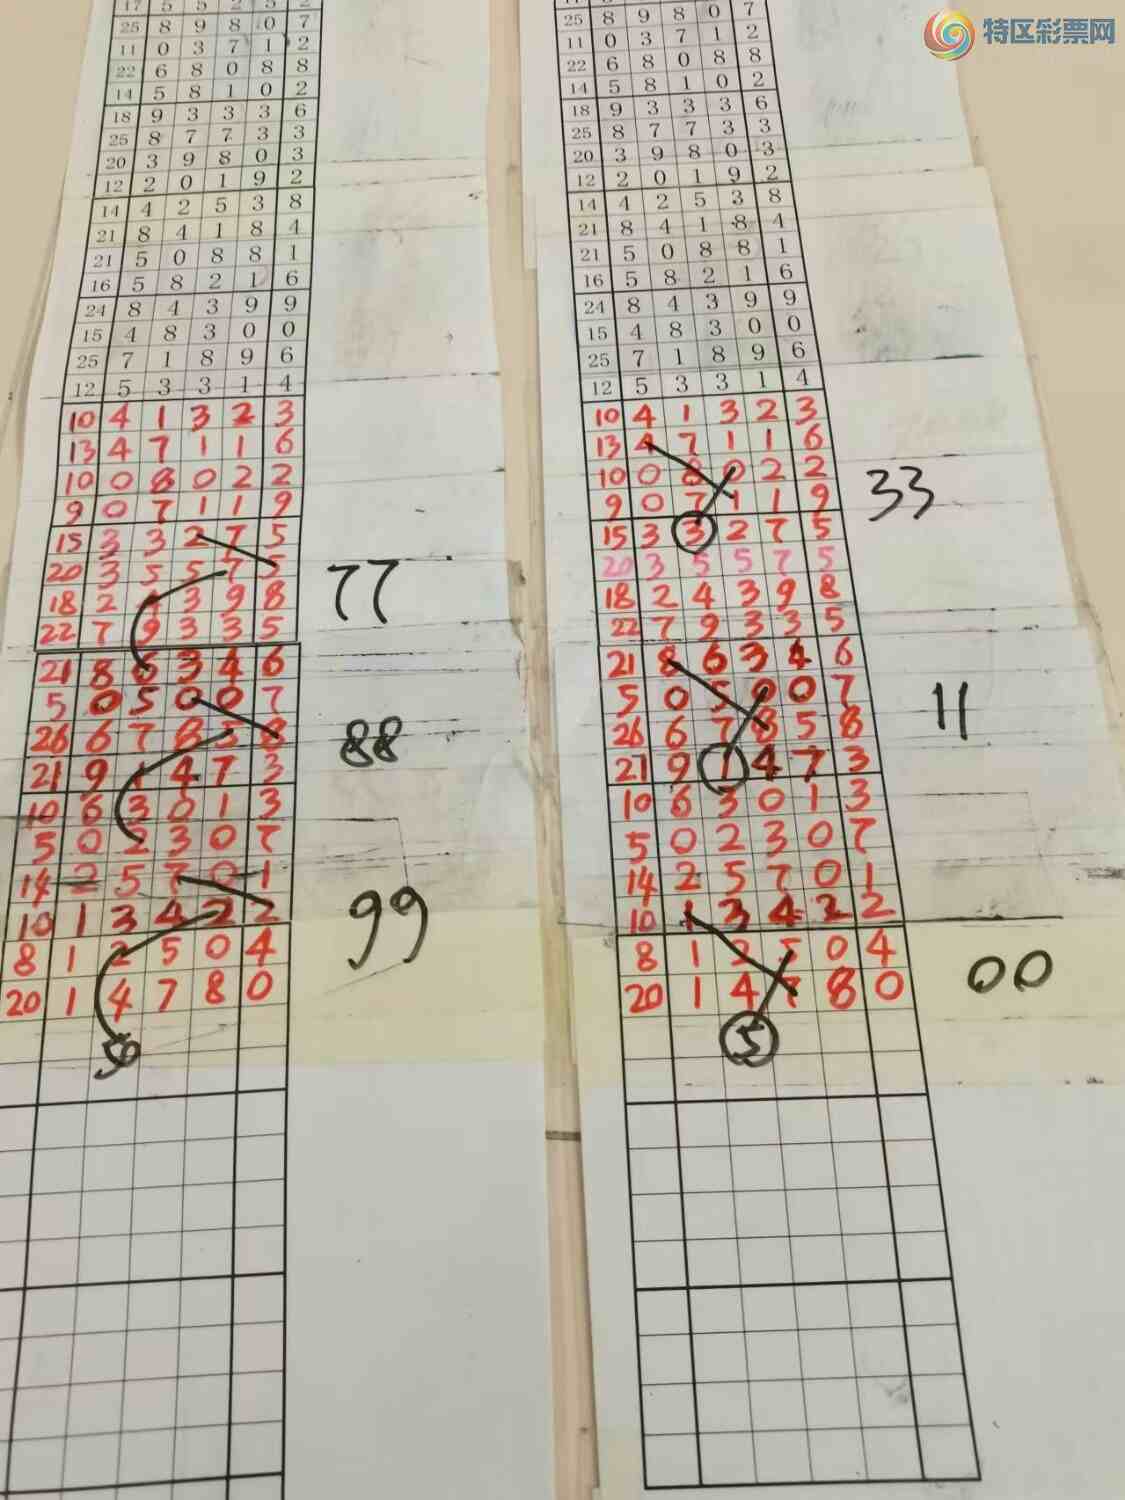 特区彩票网
17 5 5 2 5 2
25 8 9 8 0 7
11 0 3 7 1 2
22 6 8 0 8 8
14 5 8 1 0 2
18 9 3 3 3 6
25 8 7 7 3 3
20 3 9 8 0 3
12 2 0 1 9 2
14 4 2 5 3 8
21 8 4 1 8 4
21 5 0 8 8 1
16 5 8 2 1 6
24 8 4 3 9 9
15 4 8 3 0 0
25 7 1 8 9 6
12 5 3 3 1 4
10 4 1 3 2 3
13 4 7 1 1 6
10 0 8 0 2 2
9 0 7 1 1 9
15 3 3 2 7 5
20 3 5 5 7 5
77
18 2 4 3 9 8
22 7 9 3 3 5
21 8 6 3 4 6
5 0 5 0 0 7
26 6 7 8 5 8
88
21 9 1 4 7 3
10 6 3 0 1 3
5 0 2 3 0 7
14 2 5 7 0 1
10 1 3 4 2 2
99
8 1 2 5 0 4
20 1 4 7 8 0
50
25 8 9 8 0 7
11 0 3 7 1 2
22 6 8 0 8 8
14 5 8 1 0 2
18 9 3 3 3 6
25 8 7 7 3 3
20 3 9 8 0 3
12 2 0 1 9 2
14 4 2 5 3 8
21 8 4 1 8 4
21 5 0 8 8 1
16 5 8 2 1 6
24 8 4 3 9 9
15 4 8 3 0 0
25 7 1 8 9 6
12 5 3 3 1 4
10 4 1 3 2 3
13 4 7 1 1 6
10 0 8 0 2 2
33
9 0 7 1 1 9
15 3 3 2 7 5
20 3 5 5 7 5
18 2 4 3 9 8
22 7 9 3 3 5
21 8 6 3 4 6
5 0 5 0 0 7
11
26 6 7 8 5 8
21 9 1 4 7 3
10 6 3 0 1 3
5 0 2 3 0 7
14 2 5 7 0 1
10 1 3 4 2 2
8 1 2 5 0 4
00
20 1 4 7 8 0
5